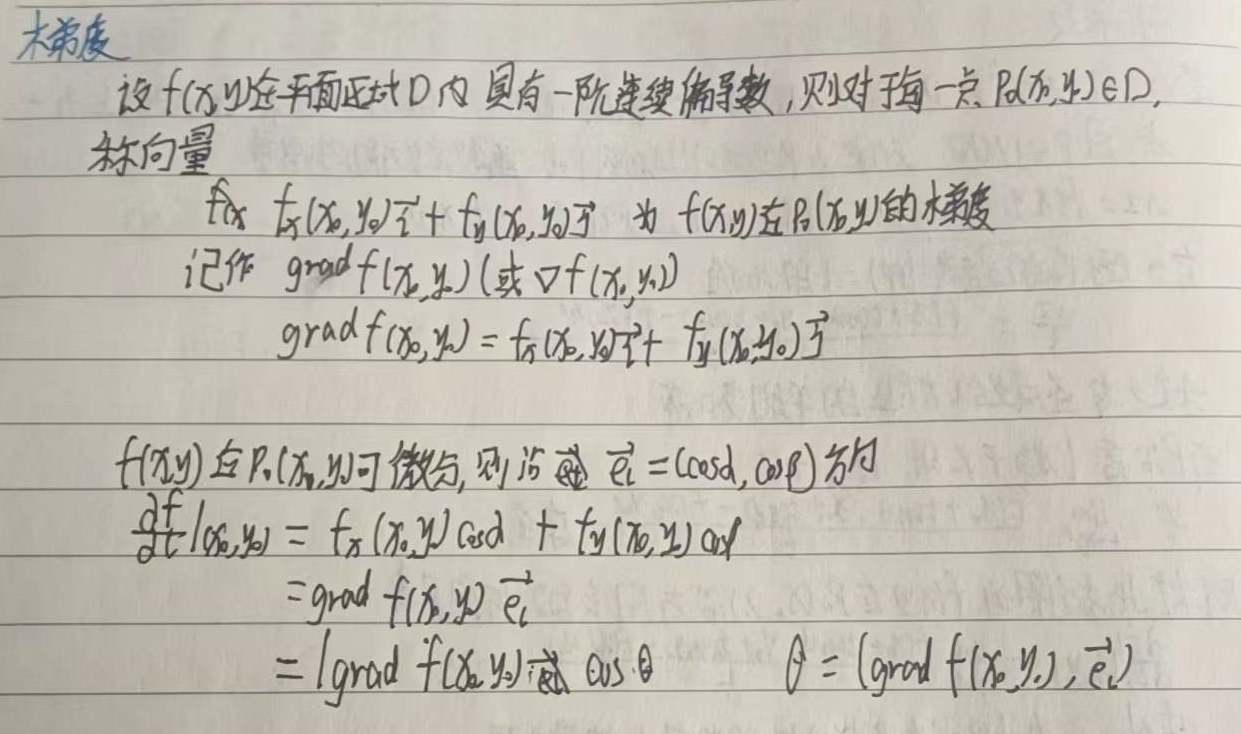 梯度
设f(x,y)在平面区域D内具有一阶连续偏导数,则对于每一点P₀(x₀,y₀)∈D,
称向量
fₓ(x₀,y₀)i⃗ + f_y(x₀,y₀)j⃗ 为 f(x,y)在P₀(x₀,y₀)的梯度
记作 grad f(x₀,y₀) (或 ▽f(x₀,y₀))
grad f(x₀,y₀) = fₓ(x₀,y₀)i⃗ + f_y(x₀,y₀)j⃗
f(x,y)在P₀(x₀,y₀)可微分,则沿 e⃗ₗ = (cosα, cosβ)方向
∂f/∂l|(x₀,y₀) = fₓ(x₀,y₀)cosα + f_y(x₀,y₀)cosβ
= grad f(x₀,y₀) e⃗ₗ
= |grad f(x₀,y₀) cos·θ θ = (grad f(x₀,y₀), e⃗ₗ)